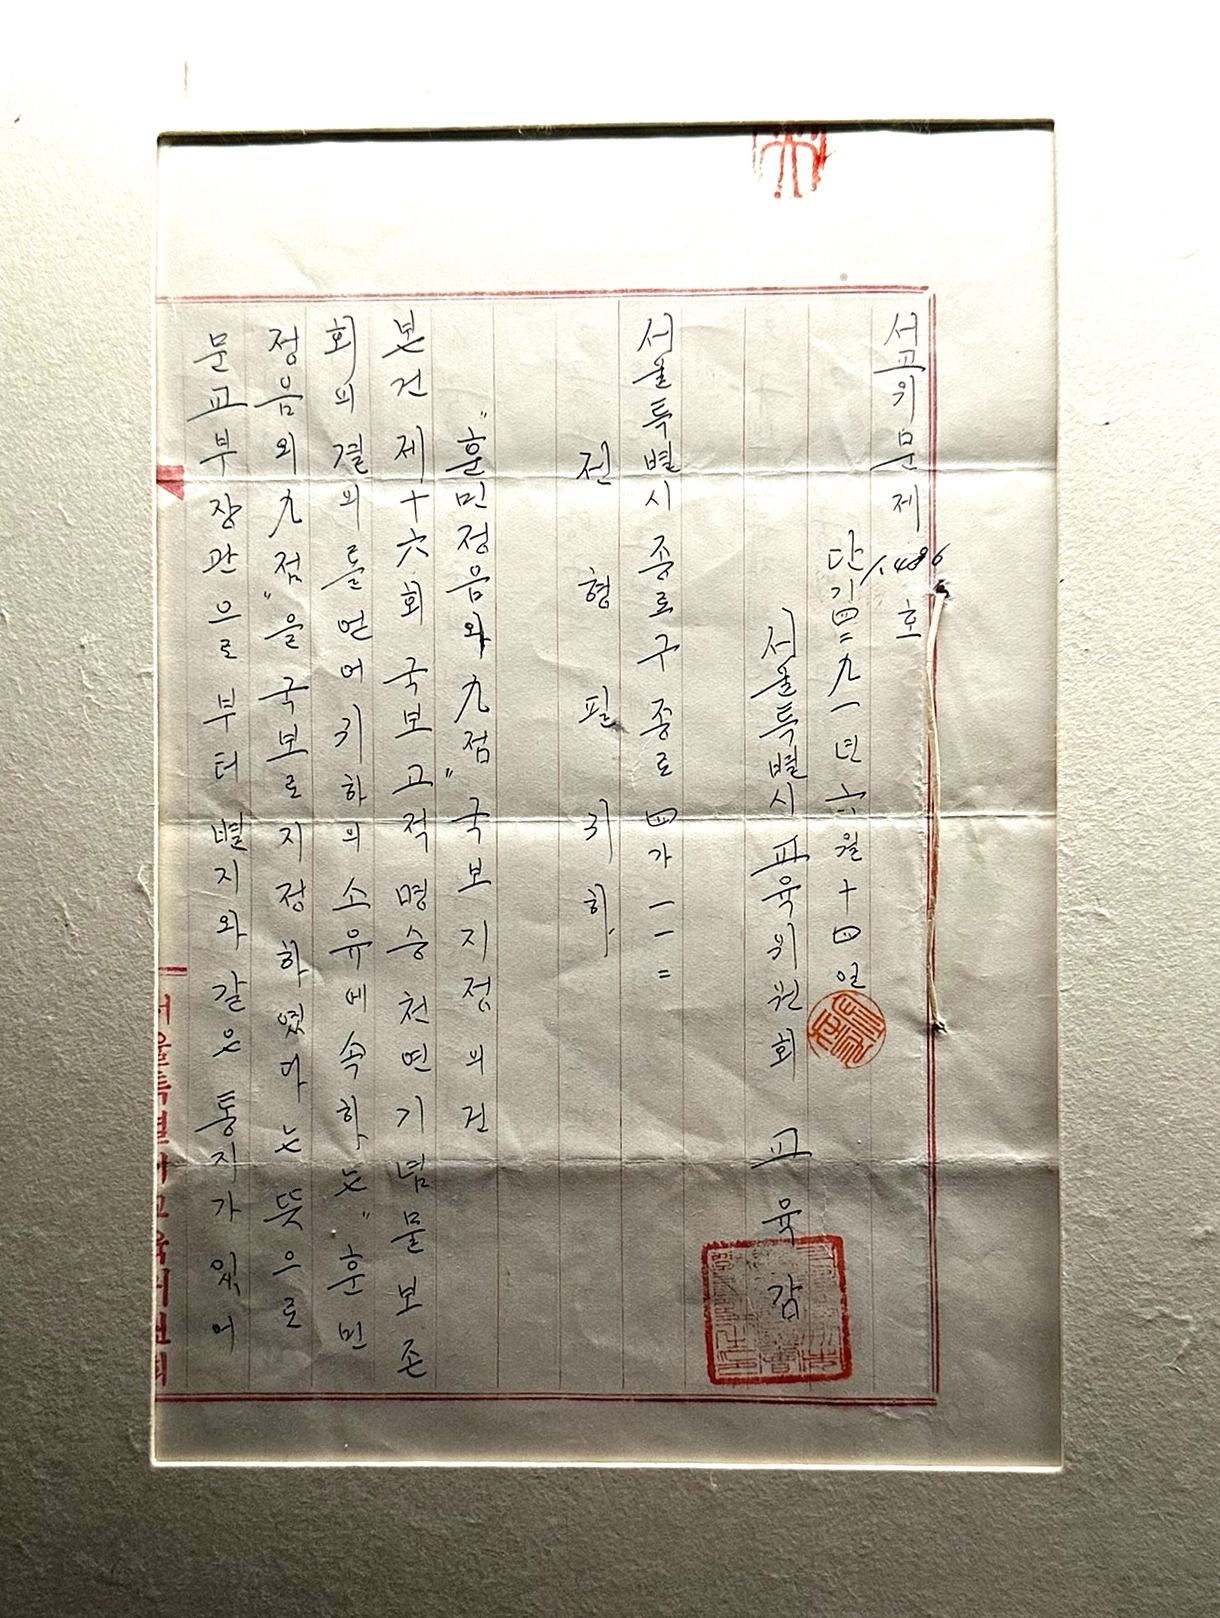 서교위문 제1496호
단기四二九一년 六월 十四일
서울특별시 교육위원회 교육감
서울특별시 종로구 종로 四가 一一二
전형필 귀하
"훈민정음와 九점" 국보지정의 건
본건 제十六회 국보고적명승천연기념물보존
회의 결의를 얻어 귀하의 소유에 속하는 "훈민
정음외 九점"을 국보로 지정하였다는 뜻으로
문교부장관으로부터 별지와 같은 통지가 있어
서울특별시교육위원회